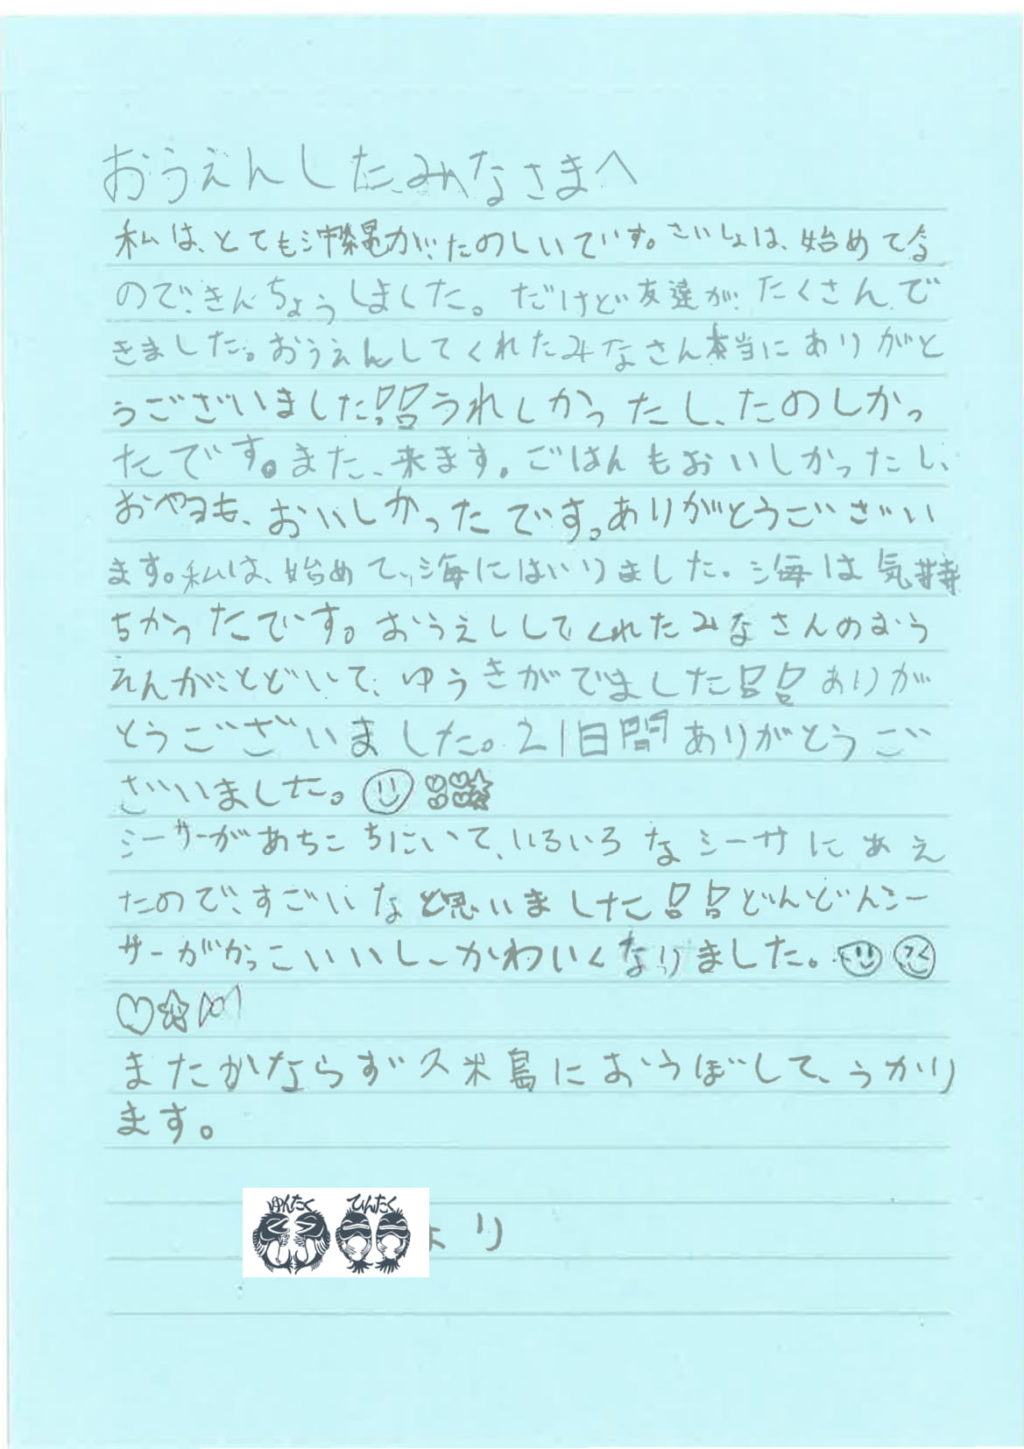 おうえんしたみなさまへ
私は、とても沖縄が、たのしいです。さいしょは、始めてな
ので、きんちょうしました。だけど友達が、たくさん、で
きました。おうえんしてくれたみなさん本当にありがと
うございました!!うれしかったし、たのしかっ
たです。また、来ます。ごはんもおいしかったし、
おやつも、おいしかったです。ありがとうござい
ます。私は、始めて、海にはいりました。海は気持
ちかったです。おうえししてくれたみなさんのおう
えんが、とどいて、ゆうきがでました!!ありが
とうございました。21日間ありがとうご
ざいました。
シーサーがあちこちにいて、いろいろなシーサにあえ
たので、すごいなと思いました!!どんどんシー
サーがかっこいいしーかわいくなりました。
またかならず久米島におうぼして、うかり
ます。
ゆんたく ひんたく
より